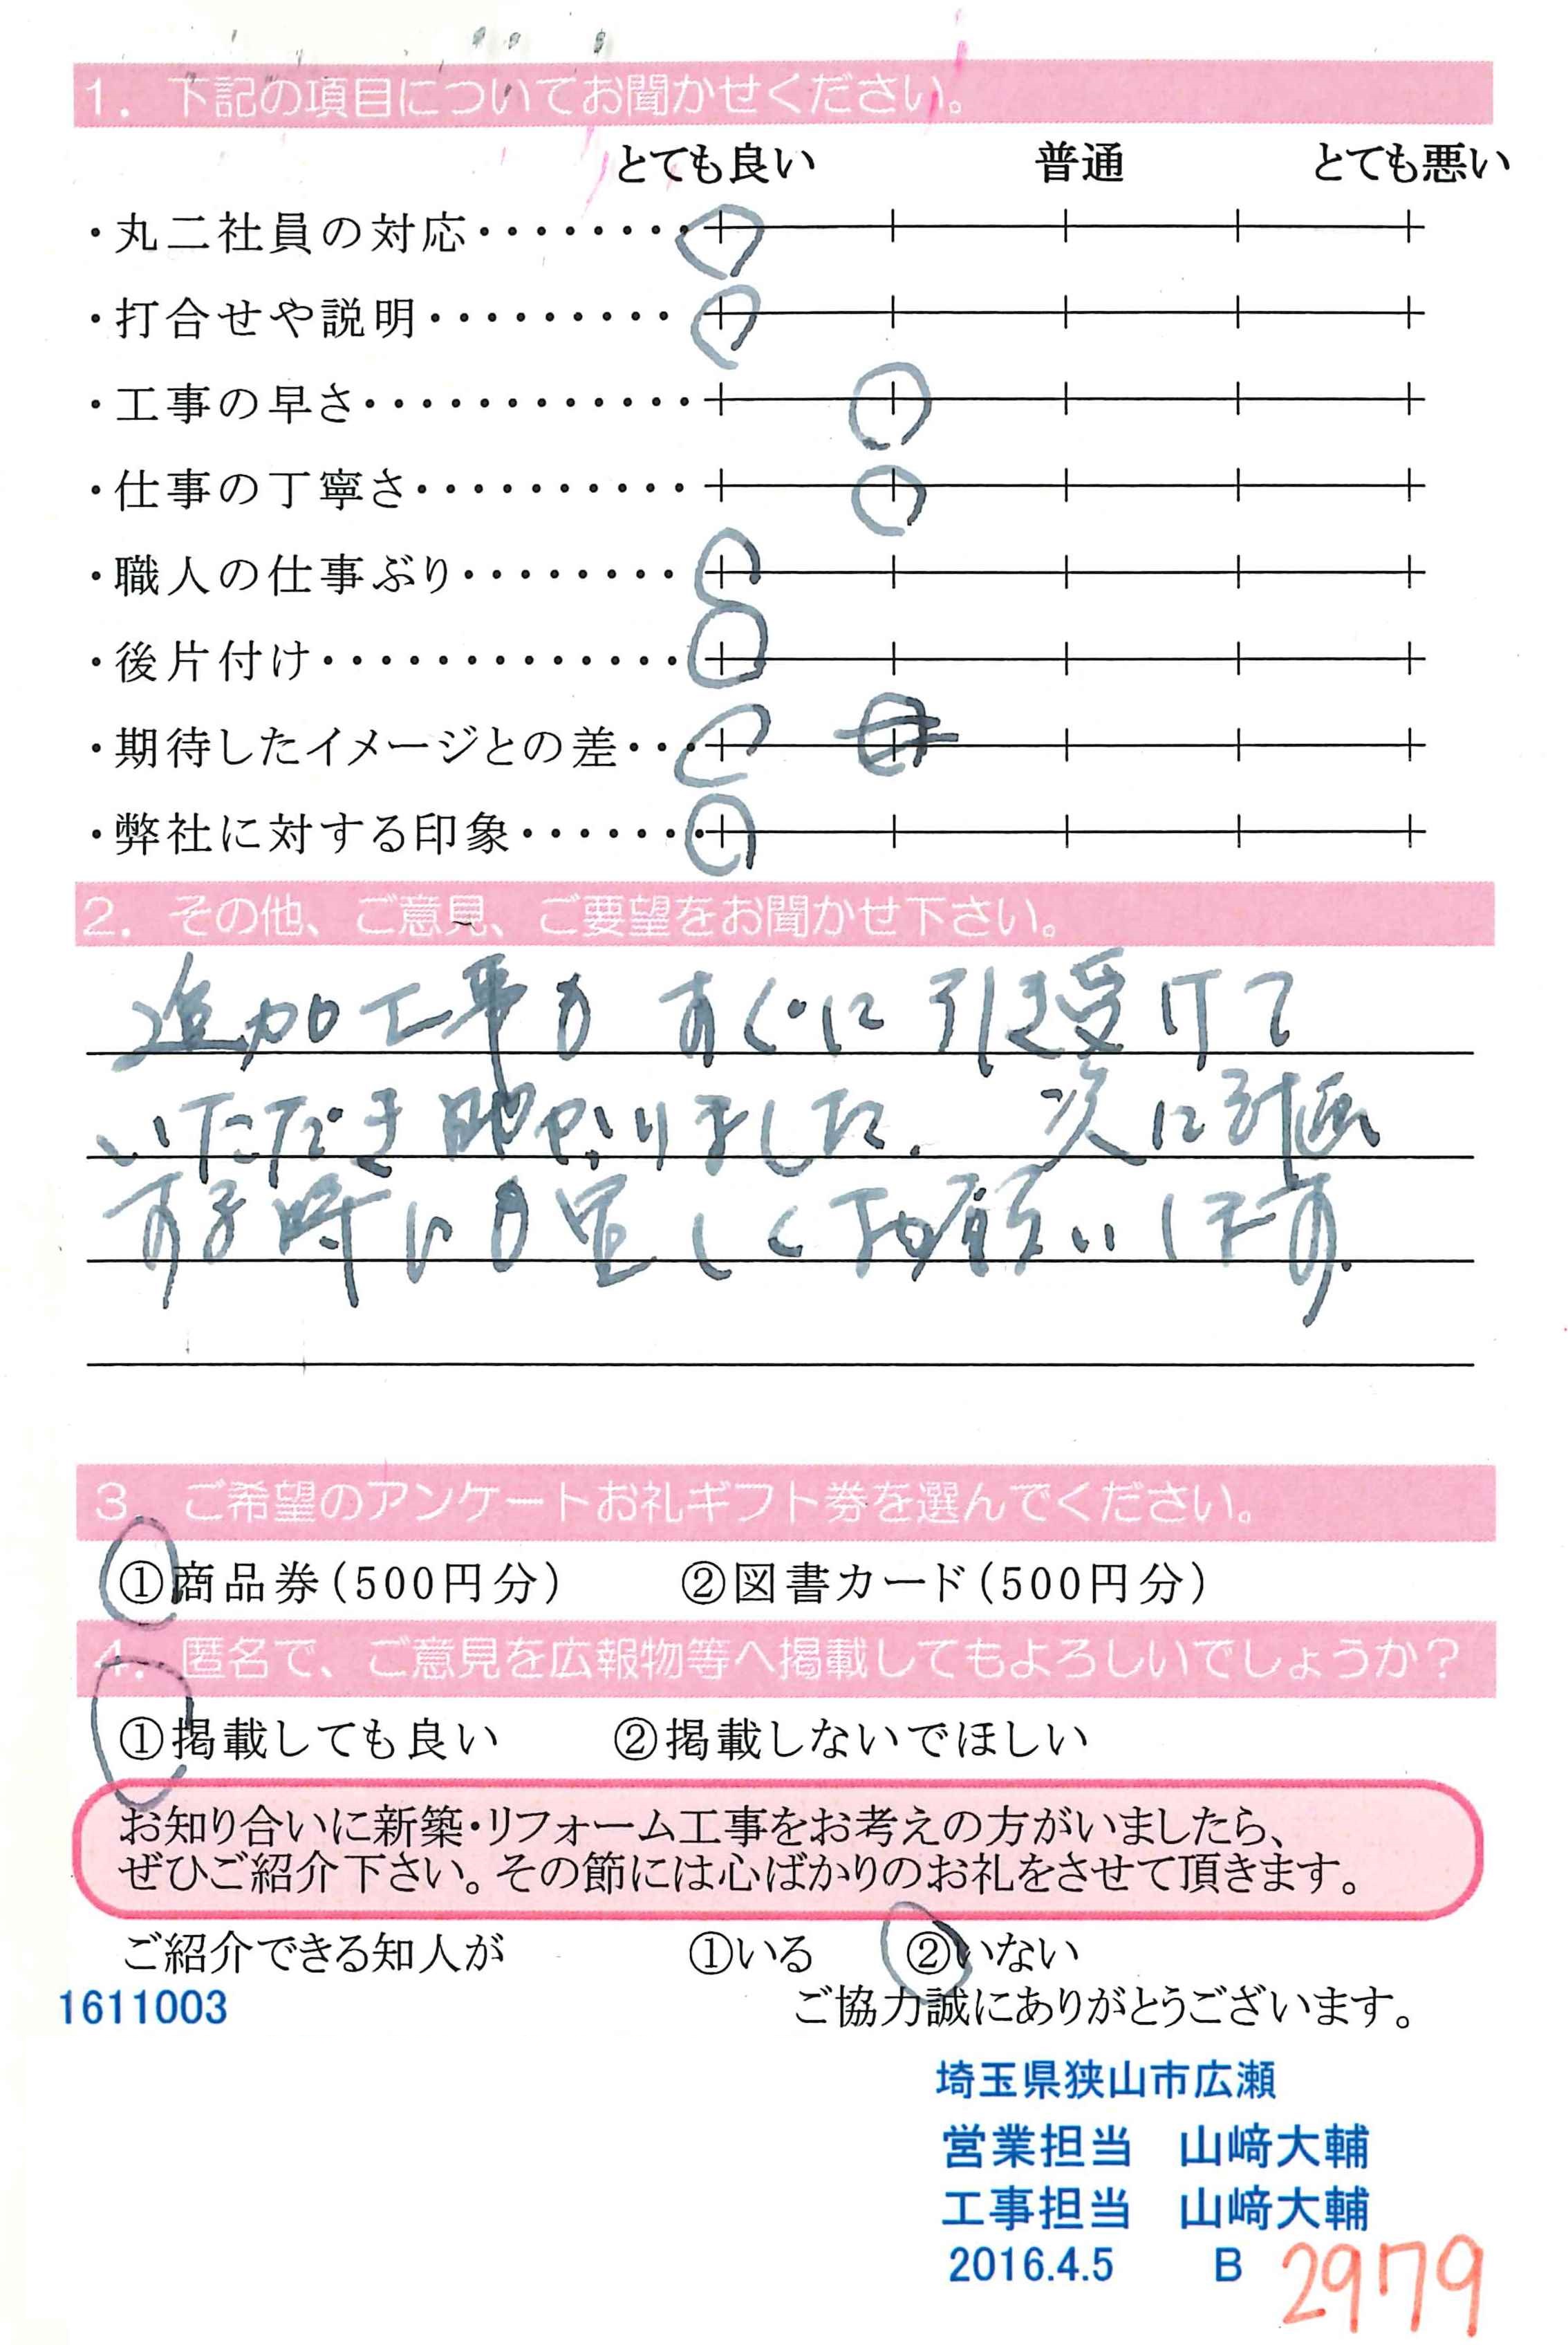 1. 下記の項目についてお聞かせください。
とても良い 普通 とても悪い
・丸二社員の対応・・・・・・・・
・打合せや説明・・・・・・・・・
・工事の早さ・・・・・・・・・・・・
・仕事の丁寧さ・・・・・・・・・・
・職人の仕事ぶり・・・・・・・・
・後片付け・・・・・・・・・・・・・
・期待したイメージとの差・・・
・弊社に対する印象・・・・・・・
2. その他、ご意見、ご要望をお聞かせ下さい。
追加工事も すぐに 引き受けて
いただき助かりました. 次に計画
する時にも宜しくお願いします.
3. ご希望のアンケートお礼ギフト券を選んでください。
①商品券(500円分) ②図書カード(500円分)
4. 匿名で、ご意見を広報物等へ掲載してもよろしいでしょうか?
①掲載しても良い ②掲載しないでほしい
お知り合いに新築・リフォーム工事をお考えの方がいましたら、
ぜひご紹介下さい。その節には心ばかりのお礼をさせて頂きます。
ご紹介できる知人が ①いる ②いない
1611003 ご協力誠にありがとうございます。
埼玉県狭山市広瀬
営業担当 山﨑大輔
工事担当 山﨑大輔
2016.4.5 B 2979